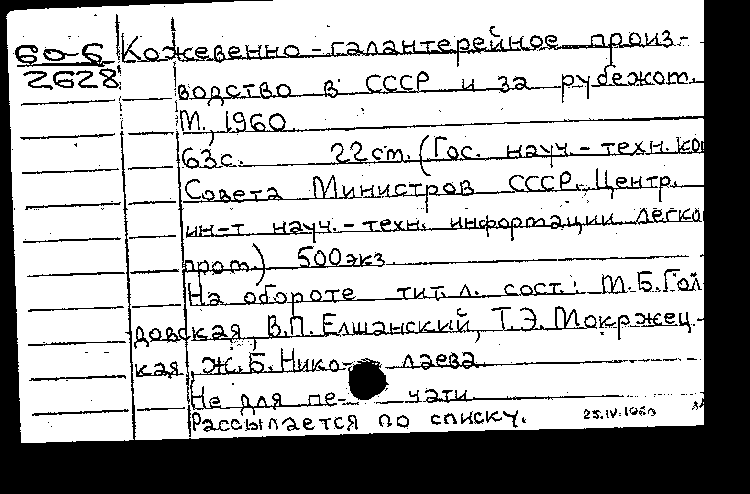 60-6 Кожевенно-галантерейное произ-
2628 водство в СССР и за рубежом.
М., 1960
63с. 22см. (Гос. науч.-техн. ком
Совета Министров СССР. Центр.
ин-т науч.-техн. информации легко
пром.) 500экз.
На обороте тит. л. сост.: М.Б.Гол-
довская, В.П. Елшанский, Т.Э. Мокржец-
кая, Ж.Б. Нико- лаева.
Не для пе- чати.
Рассылается по списку. 25.IV.1960